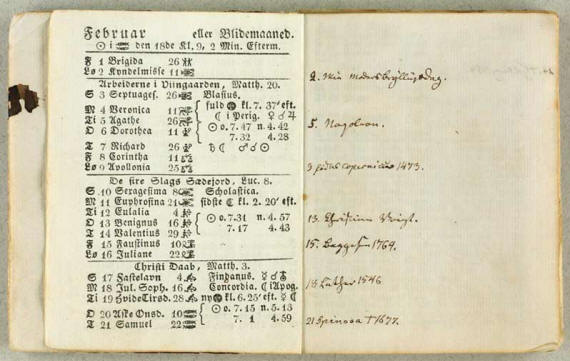 Februar eller Blidemaaned.
☉ i ♒ den 18de Kl. 9, 2 Min. Efterm.
F 1 Brigida 26
Lø 2 Kyndelmisse 11
Arbeiderne i Viingaarden, Matth. 20.
S 3 Septuages. 26 Blasius.
M 4 Veronica 11 fuld kl. 7. 37' eft.
Ti 5 Agathe 26 ☾ i Perig. ♀ ♂ ♃
O 6 Dorothea 11 ☉ o. 7. 47 n. 4. 42
7. 32 4. 28
T 7 Richard 26 ♄ ☾ ♂ ☉
F 8 Corintha 11
Lø 9 Apollonia 25
De fire Slags Sædejord, Luc. 8.
S 10 Sexagesima 8 Scholastica.
M 11 Euphrosina 21 sidste ☾ kl. 2. 20' eft.
Ti 12 Eulalia 4
O 13 Benignus 16 ☉ o. 7.31 n. 4. 57
T 14 Valentius 29 7. 17 4. 43
F 15 Faustinus 10
Lø 16 Juliane 22
Christi Daab, Matth. 3.
S 17 Fastelavn 4 Findanus.
M 18 Jul. Soph. 16 Concordia. ☾ i Apog.
Ti 19 HvideTirsd. 28 ny kl. 6. 25' eft. ☿ ☾
O 20 Aske Onsd. 10 ☉ o. 7. 15 n. 5. 13
T 21 Samuel 22 7. 1 4. 59
2. min Dag.
5.
3 copernicus 1473.
13. Christian
15. Baggesen 1764.
18 Luther 1546
21 Spinoza † 1677.